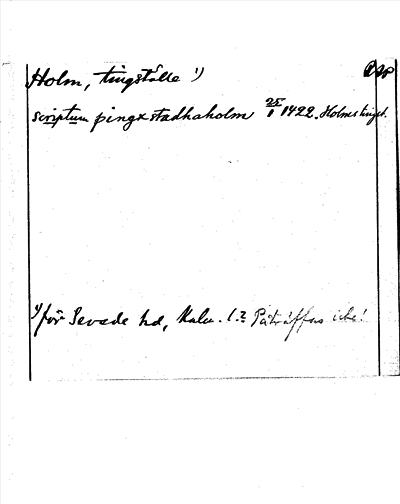 Holm, tingställe 1)
scriptum þingxstadhaholm 25/1 1422. Holmstinget.
1) för Sevede hd, Kalm. l.? Påträffas icke!